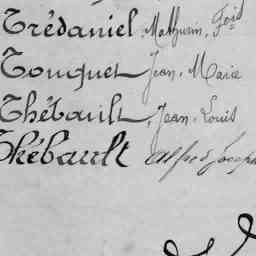 Trédaniel, Mathurin, Fois
Touquet Jean, Marie
Thébault, Jean, Louis
Thébault Alfred Joseph